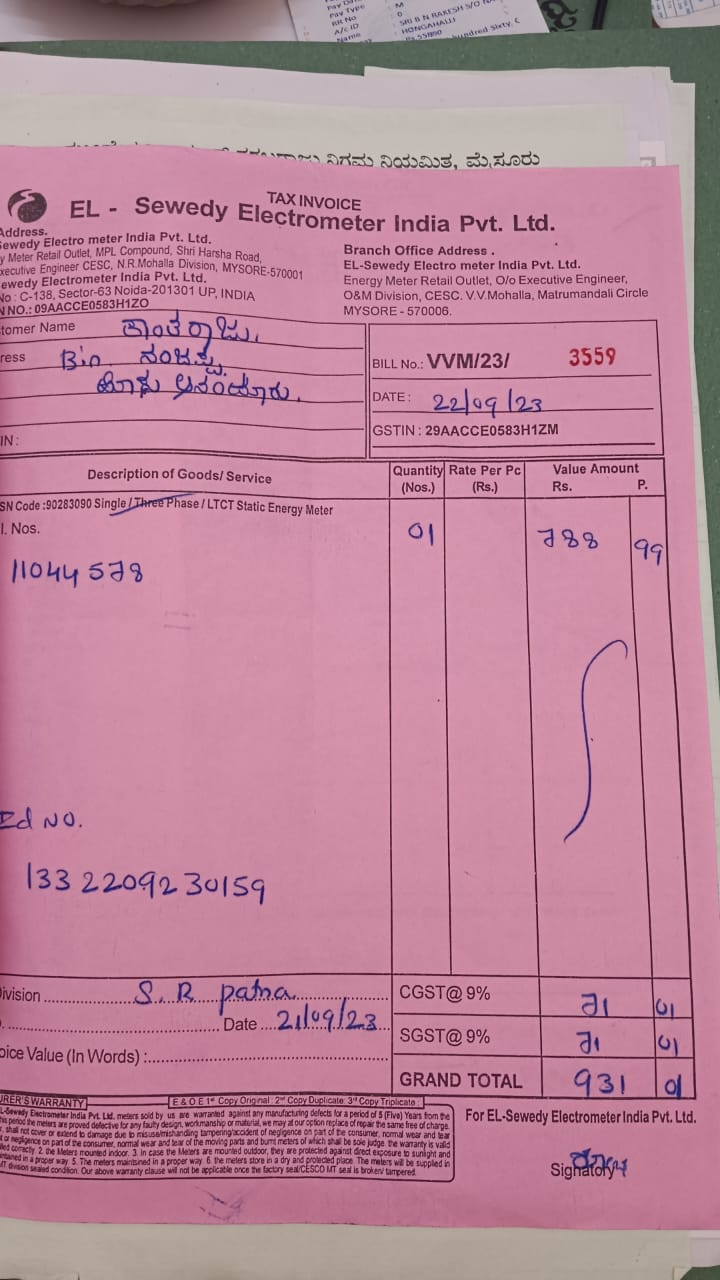 M
Pay Type
RR No : 0
A/c ID : SRI B N RAKESH S/O
Name : HONGAHALLI
Rs.55890
hundred Sixty, C
ನಿಗಮ ನಿಯಮಿತ, ಮೈಸೂರು
TAX INVOICE
EL - Sewedy Electrometer India Pvt. Ltd.
Address.
Sewedy Electro meter India Pvt. Ltd.
y Meter Retail Outlet, MPL Compound, Shri Harsha Road,
xecutive Engineer CESC, N.R.Mohalla Division, MYSORE-570001
ewedy Electrometer India Pvt. Ltd.
No : C-138, Sector-63 Noida-201301 UP, INDIA
N NO.: 09AACCE0583H1ZO
Branch Office Address .
EL-Sewedy Electro meter India Pvt. Ltd.
Energy Meter Retail Outlet, O/o Executive Engineer,
O&M Division, CESC. V.V.Mohalla, Matrumandali Circle
MYSORE - 570006.
tomer Name ಕಾಂತರಾಜು.
ress Bin
IN :
BILL No.: VVM/23/ 3559
DATE : 22/09/23
GSTIN : 29AACCE0583H1ZM
Description of Goods/ Service Quantity (Nos.) Rate Per Pc (Rs.) Value Amount Rs. P.
SN Code :90283090 Single / Three Phase / LTCT Static Energy Meter
l. Nos. 01 788 99
11044578
Ed NO.
1332209230159
ivision S. R patna
Date 21/09/23
oice Value (In Words) :
CGST@ 9% 71 01
SGST@ 9% 71 01
GRAND TOTAL 931 01
URER'S WARRANTY
E & O E 1st Copy Original : 2nd Copy Duplicate: 3rd Copy Triplicate :
L-Sewedy Electrometer India Pvt. Ltd, meters sold by us are warranted against any manufacturing defects for a period of 5 (Five) Years from the
his period the meters are proved defective for any faulty design, workmanship or material, we may at our option replace of repair the same free of charge.
, shall not cover or extend to damage due to misuse/mishandling tampering/accident of negligence on part of the consumer, normal wear and tear
t or negligence on part of the consumer, normal wear and tear of the moving parts and burnt meters of which shall be sole judge. the warranty is valid
lled correctly. 2. the Meters mounted indoor. 3. In case the Meters are mounted outdoor, they are protected against direct exposure to sunlight and
ntained in a proper way. 5. The meters maintained in a proper way. 6. the meters store in a dry and protected place. The meters will be supplied in
MT division sealed condition. Our above warranty clause will not be applicable once the factory seal/CESCO MT seal is broken/ tampered.
For EL-Sewedy Electrometer India Pvt. Ltd.
Signatory